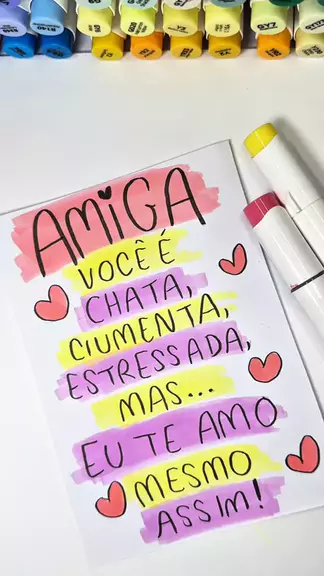 AMIGA
VOCÊ É
CHATA,
CIUMENTA,
ESTRESSADA,
MAS...
EU TE AMO
MESMO
ASSIM!